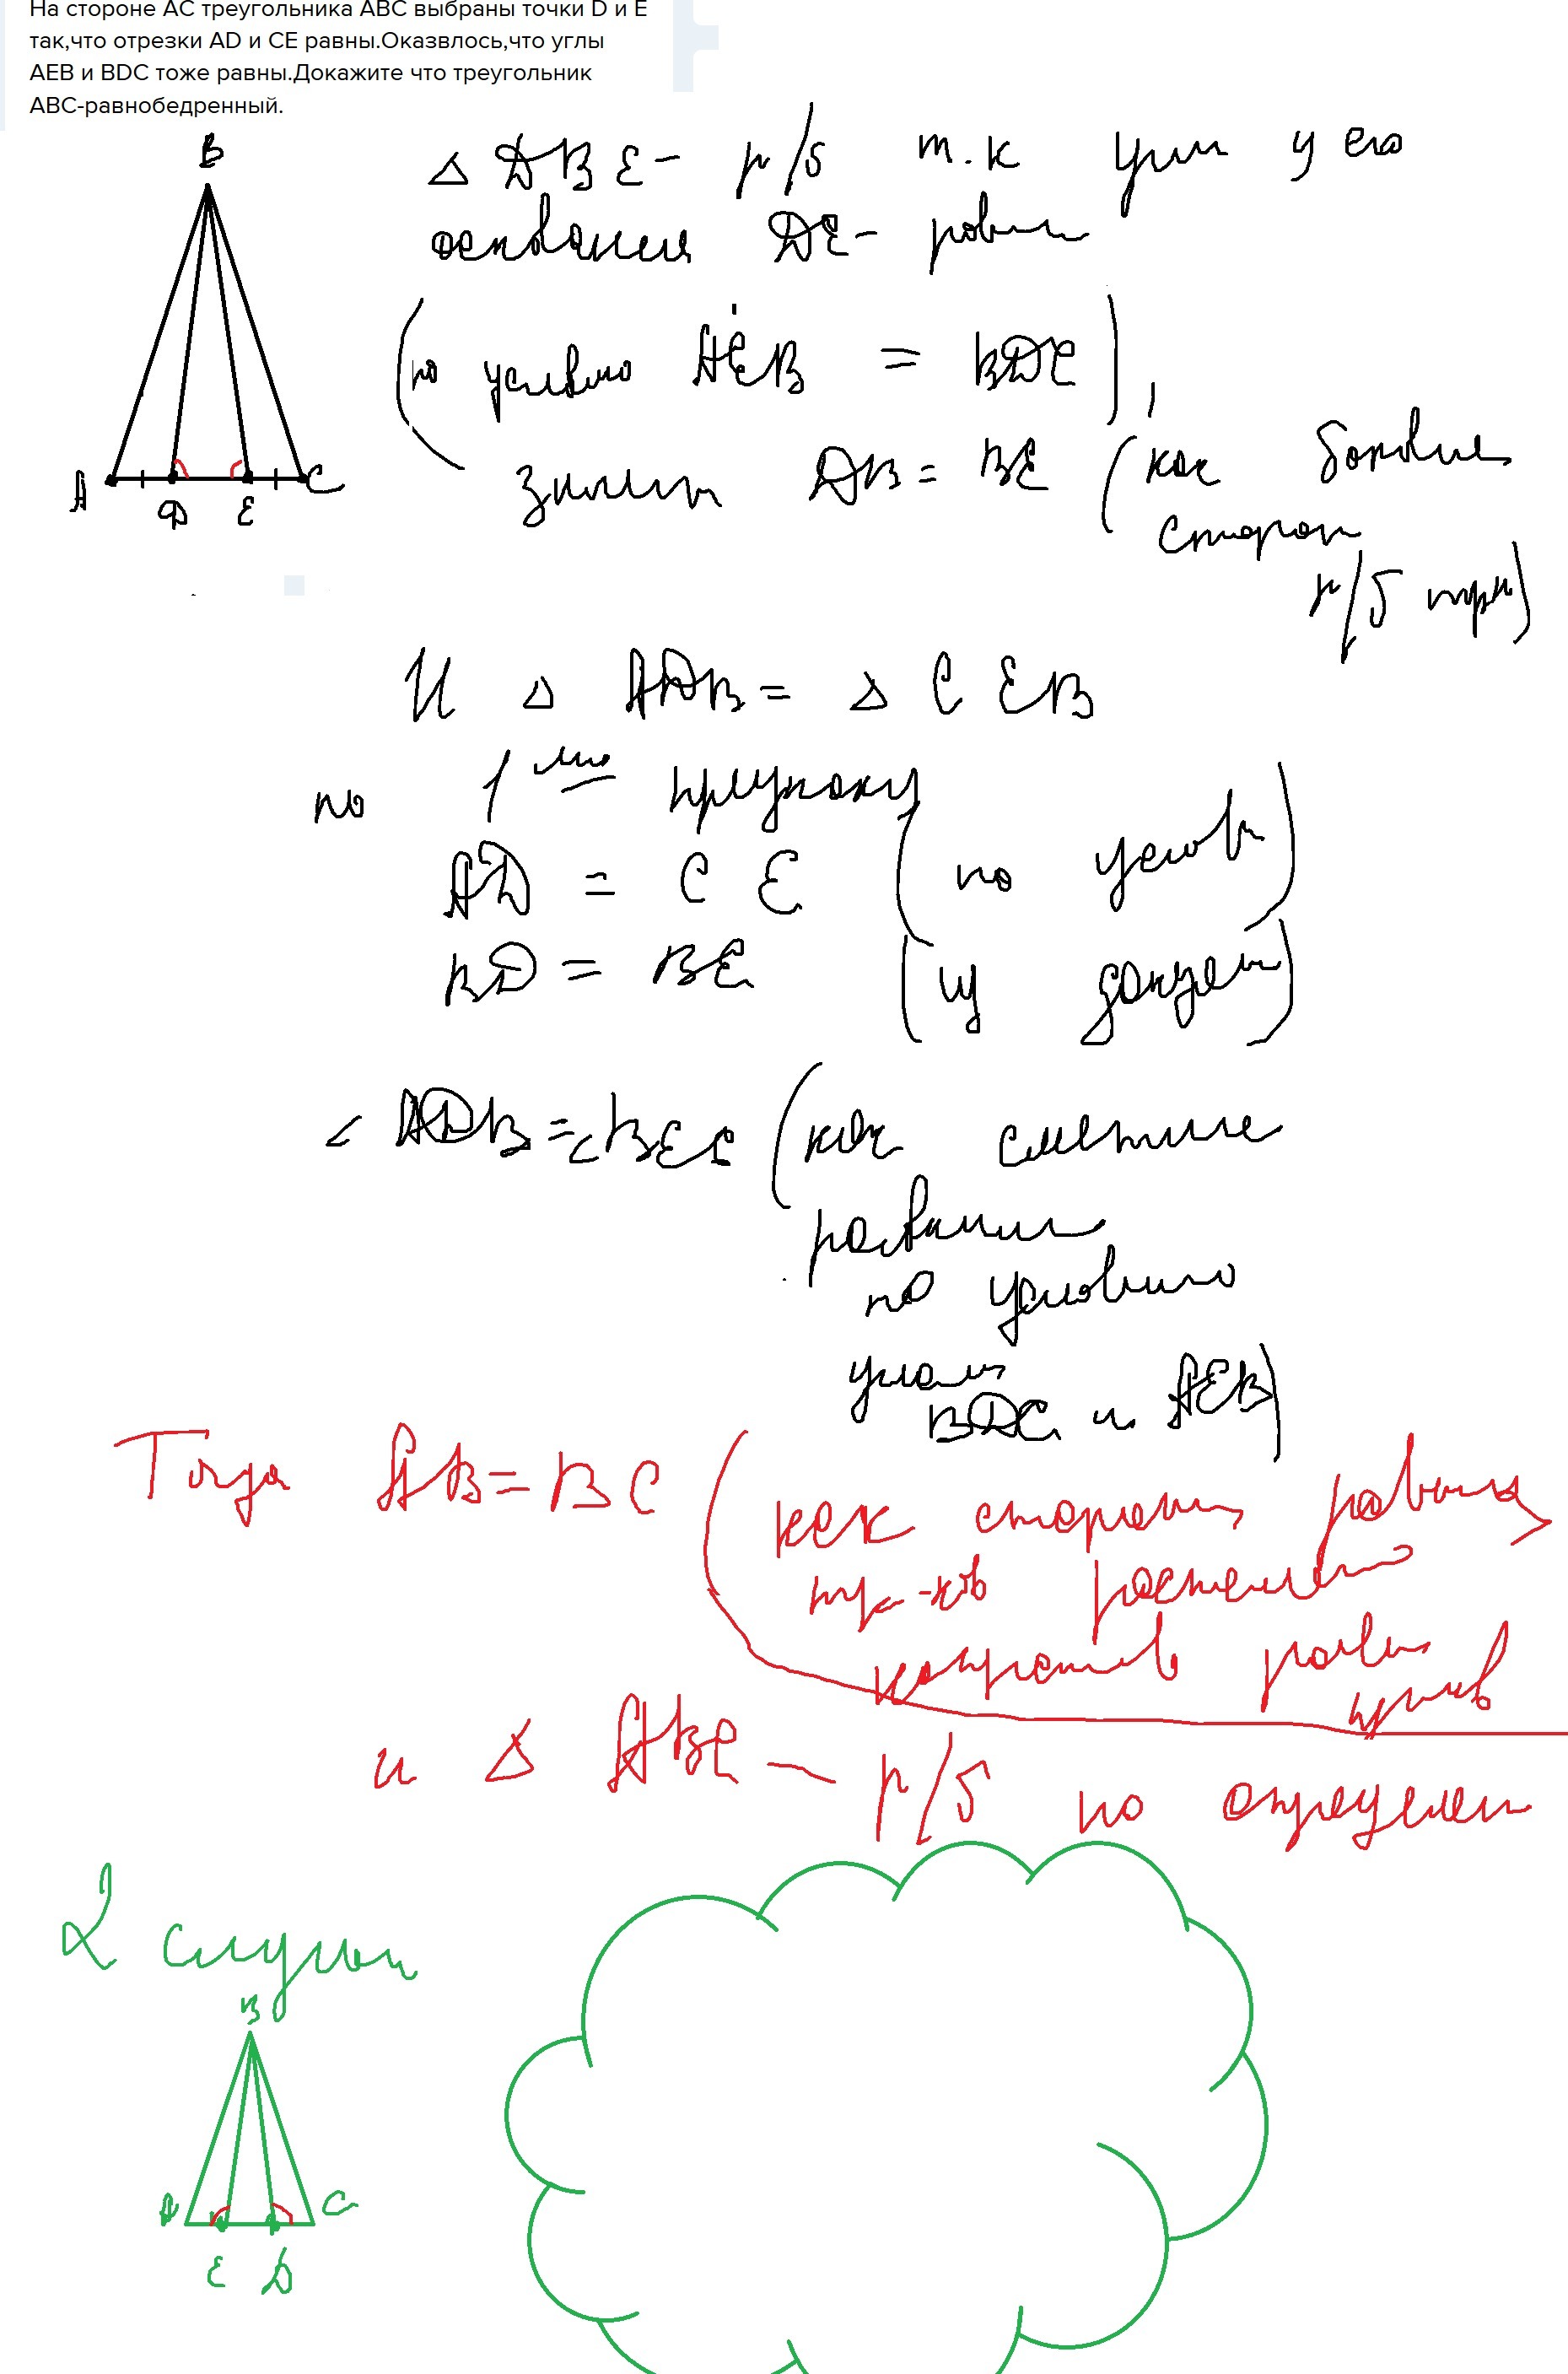 На стороне АС треугольника АВС выбраны точки D и E
так,что отрезки AD и CE равны.Оказвлось,что углы
AEB и BDC тоже равны.Докажите что треугольник
ABC-равнобедренный.
B
A D E C
△ DBE - р/б т.к углы у его
основания DE - равны
(по условию AEB = BDC),
значит DB = BE (как боковые
сторон
р/б трк)
И △ ADB = △ CEB
по 1 ому признаку
AD = CE (по услов)
BD = BE (из доказ)
∠ ADB = ∠ BEC (как смежные
равными
по условию
углам
BDC и AEB)
Тогда AB = BC (как стороны равных
тр-ков
напротив равн
углов
и △ ABC - р/б по определен
2 случай
B
A C
E D